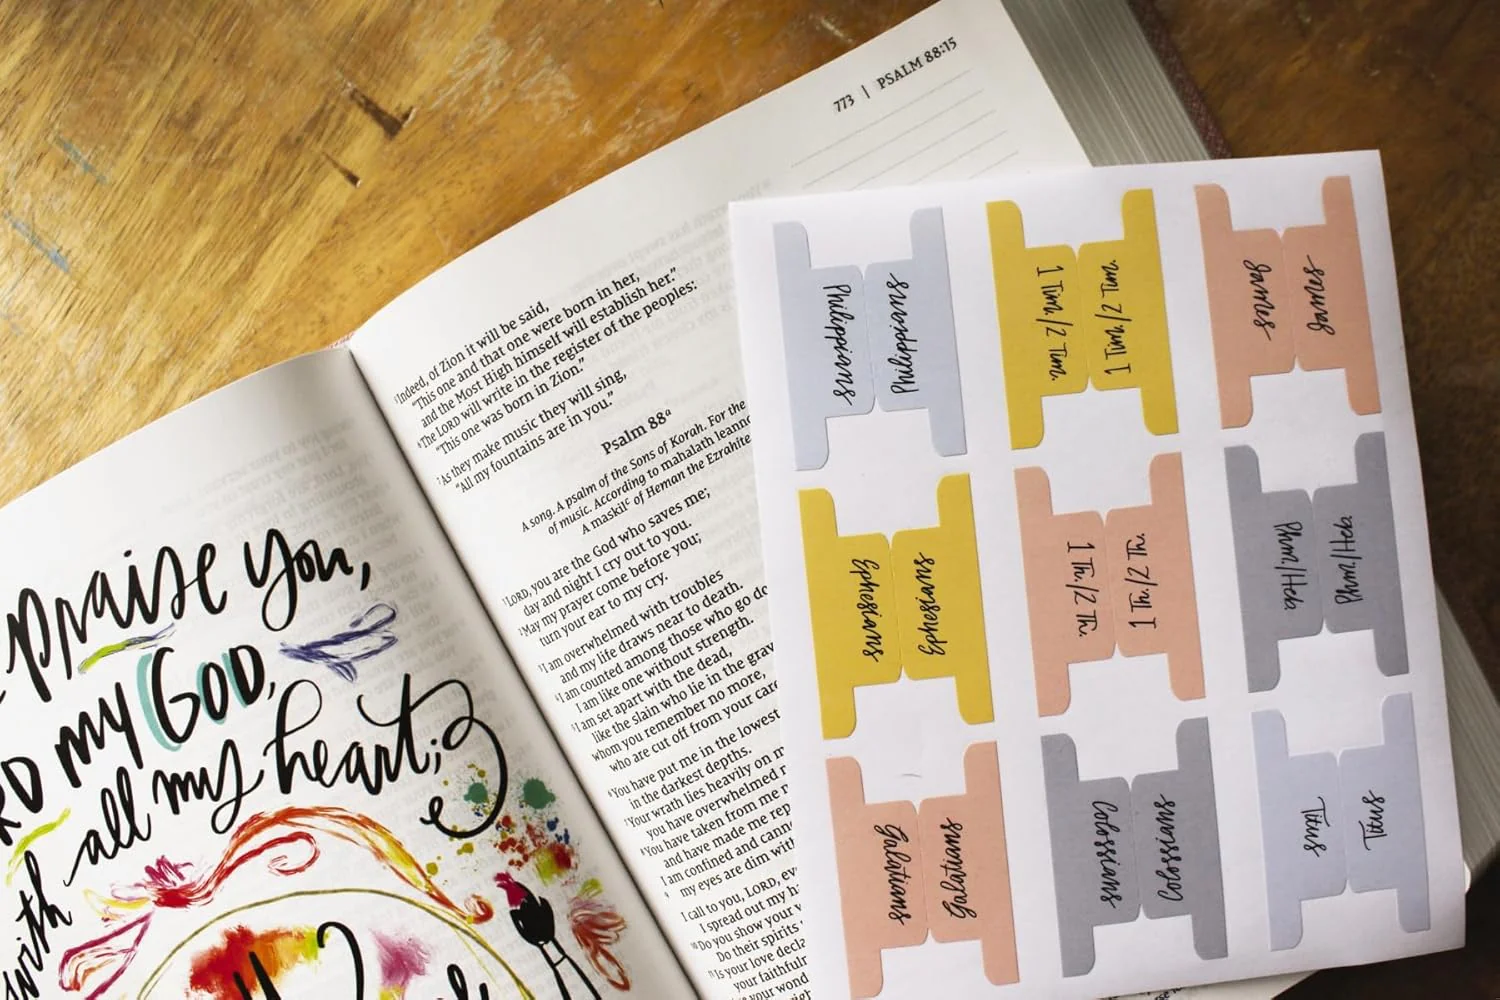 praise you,
my God,
with all my heart;
773 | PSALM 88:15
⁵Indeed, of Zion it will be said,
“This one and that one were born in her,
and the Most High himself will establish her.”
⁶The LORD will write in the register of the peoples:
“This one was born in Zion.”
⁷As they make music they will sing,
“All my fountains are in you.”
Psalm 88ᵃ
A song. A psalm of the Sons of Korah. For the
of music. According to mahalath leannoth
A maskilᶜ of Heman the Ezrahite
¹LORD, you are the God who saves me;
day and night I cry out to you.
²May my prayer come before you;
turn your ear to my cry.
³I am overwhelmed with troubles
and my life draws near to death.
⁴I am counted among those who go do
I am like one without strength.
⁵I am set apart with the dead,
like the slain who lie in the grav
whom you remember no more,
who are cut off from your care
⁶You have put me in the lowest
in the darkest depths.
⁷Your wrath lies heavily on m
you have overwhelmed
⁸You have taken from me
and have made me rep
I am confined and cann
⁹my eyes are dim with
I call to you, LORD, ev
I spread out my h
¹⁰Do you show your
Do their spirits
¹¹Is your love decla
your faithfuln
your wond
Philippians
Philippians
1 Tim./2 Tim.
1 Tim./2 Tim.
James
James
Ephesians
Ephesians
1 Th./2 Th.
1 Th./2 Th.
Phm./Heb.
Phm./Heb.
Galatians
Galatians
Colossians
Colossians
Titus
Titus